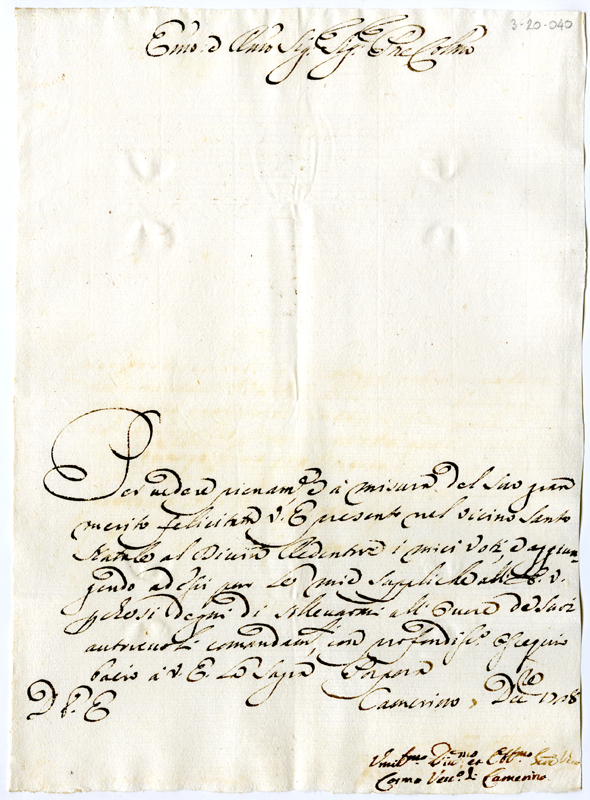 3-20-040
Emo: e Rmo Sig.r Sig.r Pne Colmo
Per vedere pienam.te à misura del suo gran
merito felicitata V. E. presento nel vicino Santo
Natale al Divin Redentore i miei voti, e aggiun-
gendo ad essi pur le mie suppliche all' E. V.
perche si degni di sollevarmi all' onore de suoi
autorevoli comandam.ti, con profondiss.o ossequio
bacio à V. E. la Sagra Porpora
Camerino, Dec.re 1718
D V. E.
Umil.mo Div.mo et Obb.mo
Cosmo Vesc.o di Camerino